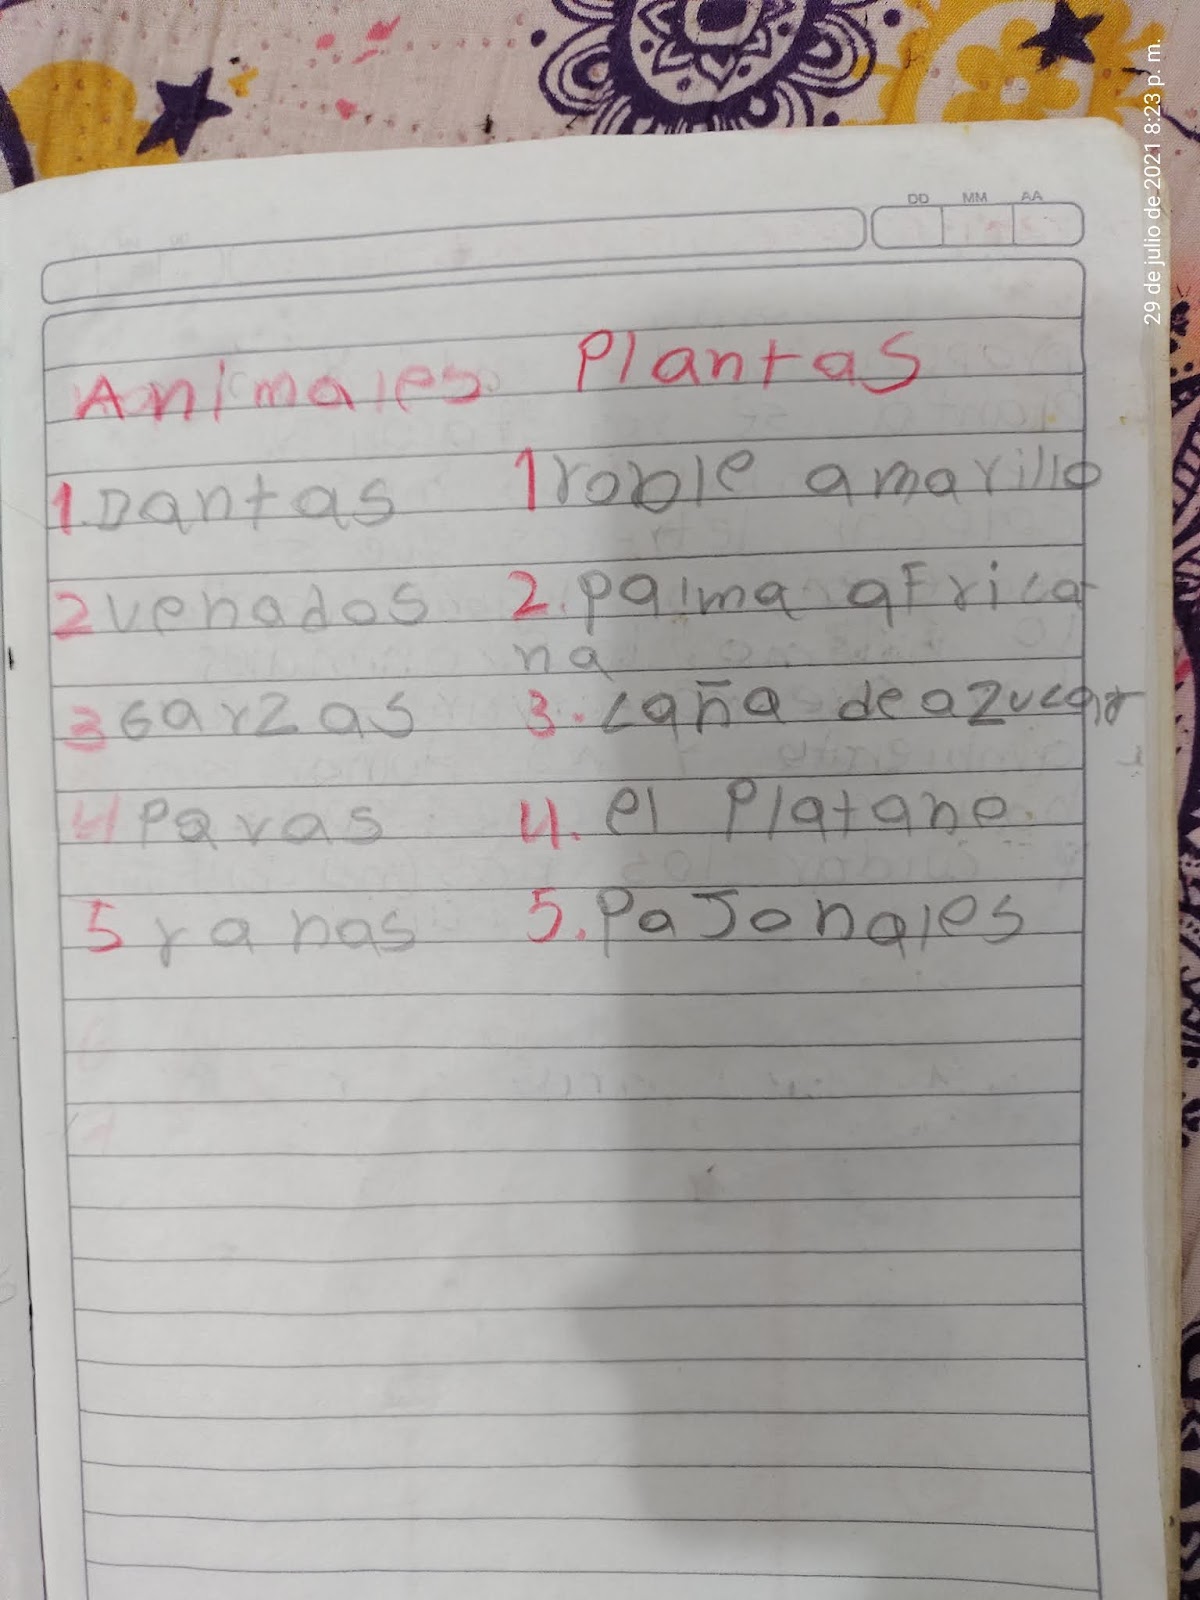 29 de julio de 2021 8:23 p. m.
DD MM AA
Animales Plantas
1. Dantas 1 roble amarillo
2 venados 2. palma africa
na
3 Garzas 3. caña de azucar
4 Pavas 4. el Platano
5 ranas 5. PaJonales